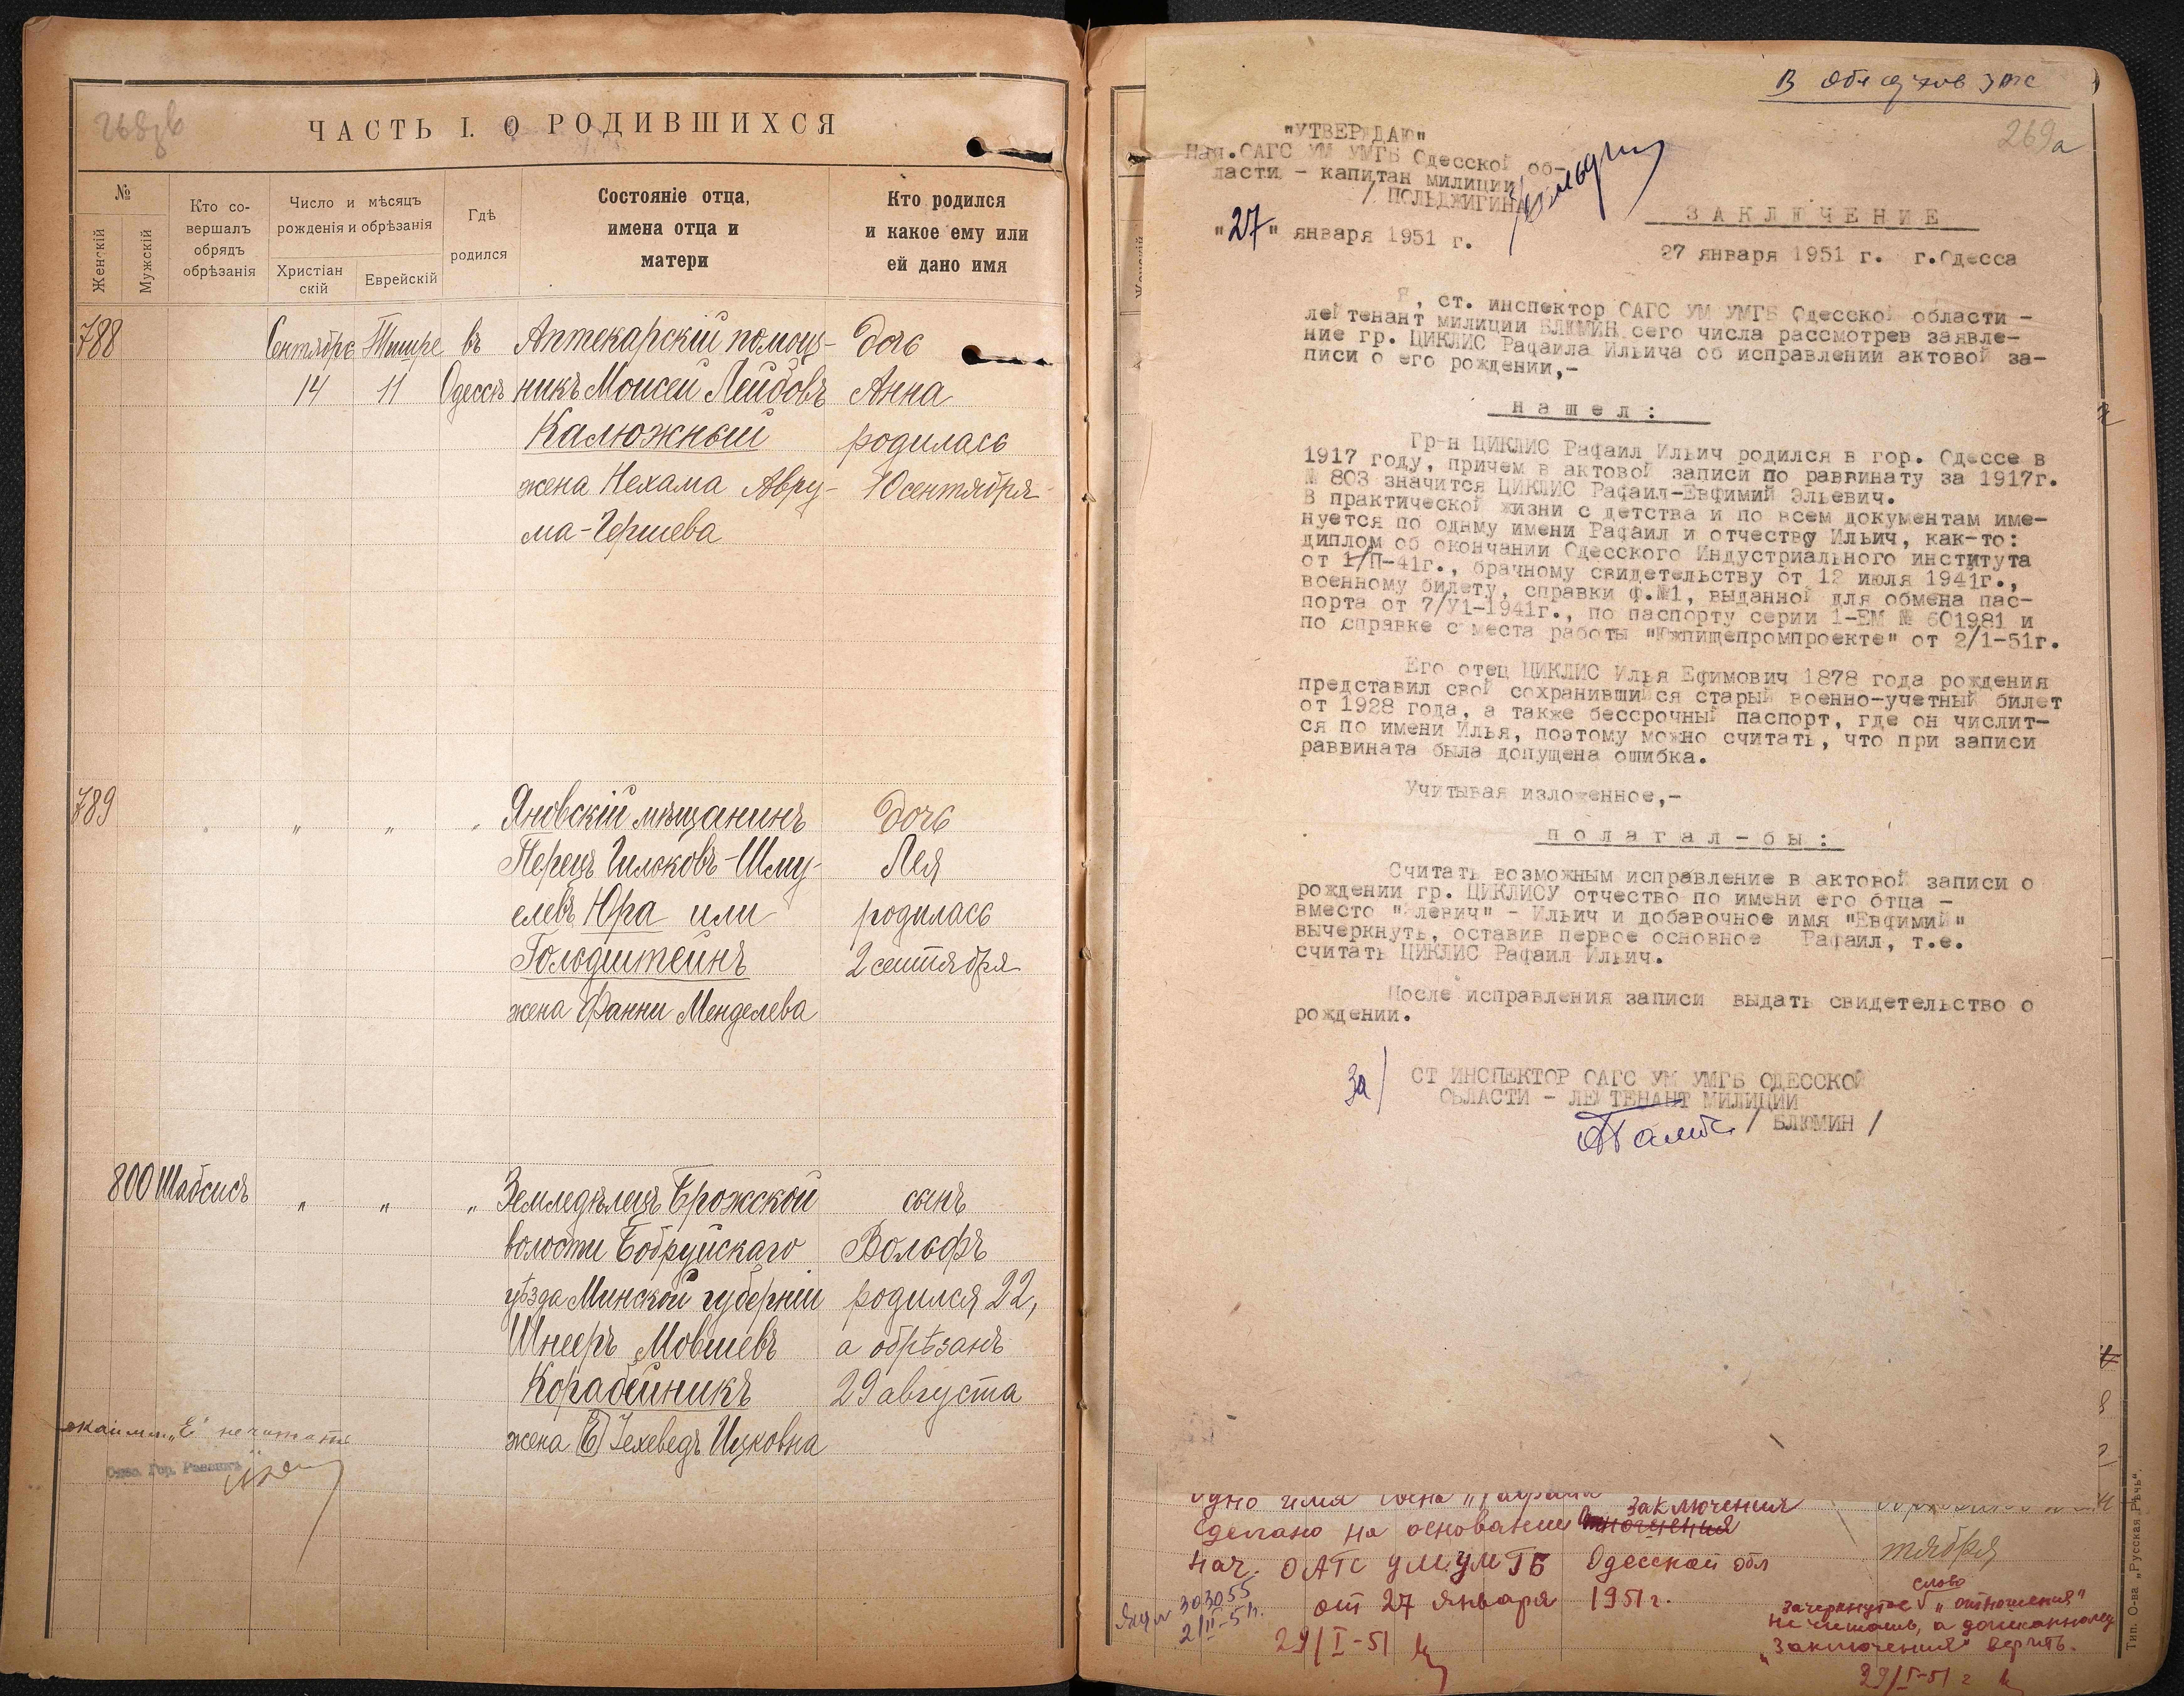 ЧАСТЬ I. О РОДИВШИХСЯ
№
Женскій
Мужскій
Кто со-
вершалъ
обрядъ
обрѣзанія
Число и мѣсяцъ
рожденія и обрѣзанія
Христіан
скій
Еврейскій
Гдѣ
родился
Состояніе отца,
имена отца и
матери
Кто родился
и какое ему или
ей дано имя
788
Сентябрь Тишре въ Аптекарскій помощ- дочь
14 11 Одессѣ никъ Моисей Лейбовъ Анна
Калюжный родилась
жена Нехама Авру- 10 сентября
ма-Гершева
789
" " " Яновскій мѣщанинъ дочь
Перецъ Гилковъ-Шму- Лея
елевъ Юра или родилась
Гольдштейнъ 2 сентября
жена Фанни Менделева
800 Шабсисъ " " " Земледѣлецъ Брожской сынъ
волости Бобруйскаго Вольфъ
уѣзда Минской губерніи родился 22,
Шнееръ Мовшевъ а обрѣзанъ
Корабейникъ 29 августа
жена Е Іехеведъ Ицковна
"Е" не читать
Одес. Гор. Раввинъ
В
269а
"УТВЕРЖДАЮ"
Нач.ОАГС УМ УМГБ Одесской об-
ласти - капитан милиции
/ ПОЛЬДЖИГИНА
"27" января 1951 г.
ЗАКЛЮЧЕНИЕ
27 января 1951 г. г.Одесса
Я, ст. инспектор ОАГС УМ УМГБ Одесской области -
лейтенант милиции БЛЮМИН сего числа рассмотрев заявле-
ние гр. ЦИКЛИС Рафаила Ильича об исправлении актовой за-
писи о его рождении,-
нашел:
Гр-н ЦИКЛИС Рафаил Ильич родился в гор. Одессе в
1917 году, причем в актовой записи по раввинату за 1917г.
№ 803 значится ЦИКЛИС Рафаил-Евфимий Эльевич.
В практической жизни с детства и по всем документам име-
нуется по одному имени Рафаил и отчеству Ильич, как-то:
диплом об окончании Одесского Индустриального института
от 1/П-41г., брачному свидетельству от 12 июля 1941г.,
военному билету, справки ф.№1, выданной для обмена пас-
порта от 7/У1-1941г., по паспорту серии 1-ЕМ № 601981 и
по справке с места работы "Южпищепромпроекте" от 2/1-51г.
Его отец ЦИКЛИС Илья Ефимович 1878 года рождения
представил свой сохранившийся старый военно-учетный билет
от 1928 года, а также бессрочный паспорт, где он числит-
ся по имени Илья, поэтому можно считать, что при записи
раввината была допущена ошибка.
Учитывая изложенное,-
полагал-бы:
Считать возможным исправление в актовой записи о
рождении гр. ЦИКЛИСУ отчество по имени его отца -
вместо "Элевич" - Ильич и добавочное имя "Евфимий"
вычеркнуть, оставив первое основное Рафаил, т.е.
считать ЦИКЛИС Рафаил Ильич.
После исправления записи выдать свидетельство о
рождении.
За/ СТ ИНСПЕКТОР ОАГС УМ УМГБ ОДЕССКОЙ
ОБЛАСТИ - ЛЕЙТЕНАНТ МИЛИЦИИ
/ БЛЮМИН /
одно имя
заключения
сделано на основании отношения
нач. ОАГС УМ УМГБ Одесской обл
от 27 января 1951 г.
29/I-51
303055
2/II-51г.
тября
слово
зачеркнутое "отношения"
не читать, а дописанному
"заключения" верить.
29/I-51 г
Тип. О-ва „Русская Рѣчь“.